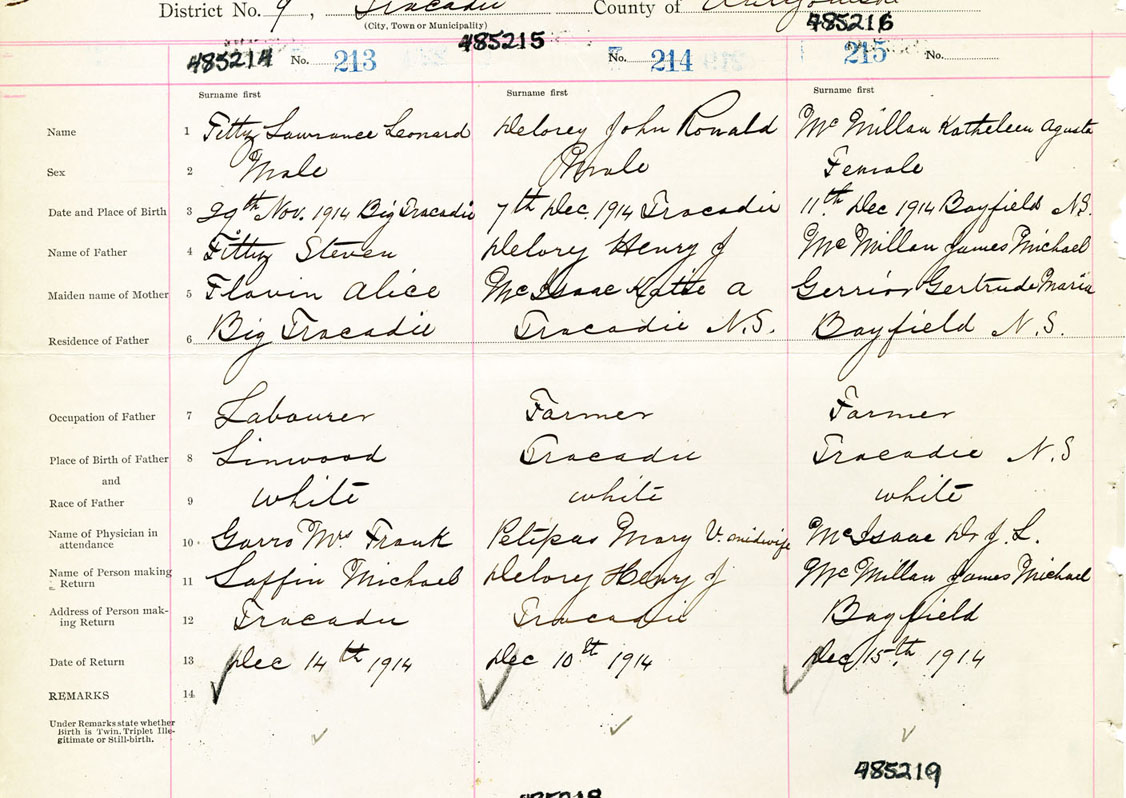 District No. 9, Tracadie County of
(City, Town or Municipality)
485214 485215 485216
No. 213 No. 214 215 No.
Surname first Surname first Surname first
Name 1 Fitty Lawrance Leonard Delorey John Ronald McMillan Katheleen Agusta
Sex 2 Male Male Female
Date and Place of Birth 3 29th Nov. 1914 Big Tracadie 7th Dec. 1914 Tracadie 11th Dec 1914 Bayfield N.S.
Name of Father 4 Fitty Steven Delory Henry J McMillan James Michael
Maiden name of Mother 5 Flavin Alice McIsaac Katie A Gerrior Gertrude Maria
Residence of Father 6 Big Tracadie Tracadie N.S. Bayfield N.S.
Occupation of Father 7 Labourer Farmer Farmer
Place of Birth of Father 8 Linwood Tracadie Tracadie N.S
and
Race of Father 9 white white white
Name of Physician in
attendance 10 Garro Mrs Frank Petipas Mary V. midwife McIsaac Dr J. L.
Name of Person making
Return 11 Laffin Michael Delory Henry J McMillan James Michael
Address of Person mak-
ing Return 12 Tracadie Tracadie Bayfield
Date of Return 13 Dec 14th 1914 Dec 10th 1914 Dec 15th, 1914
REMARKS 14
Under Remarks state whether
Birth is Twin, Triplet Ille-
gitimate or Still-birth.
485219